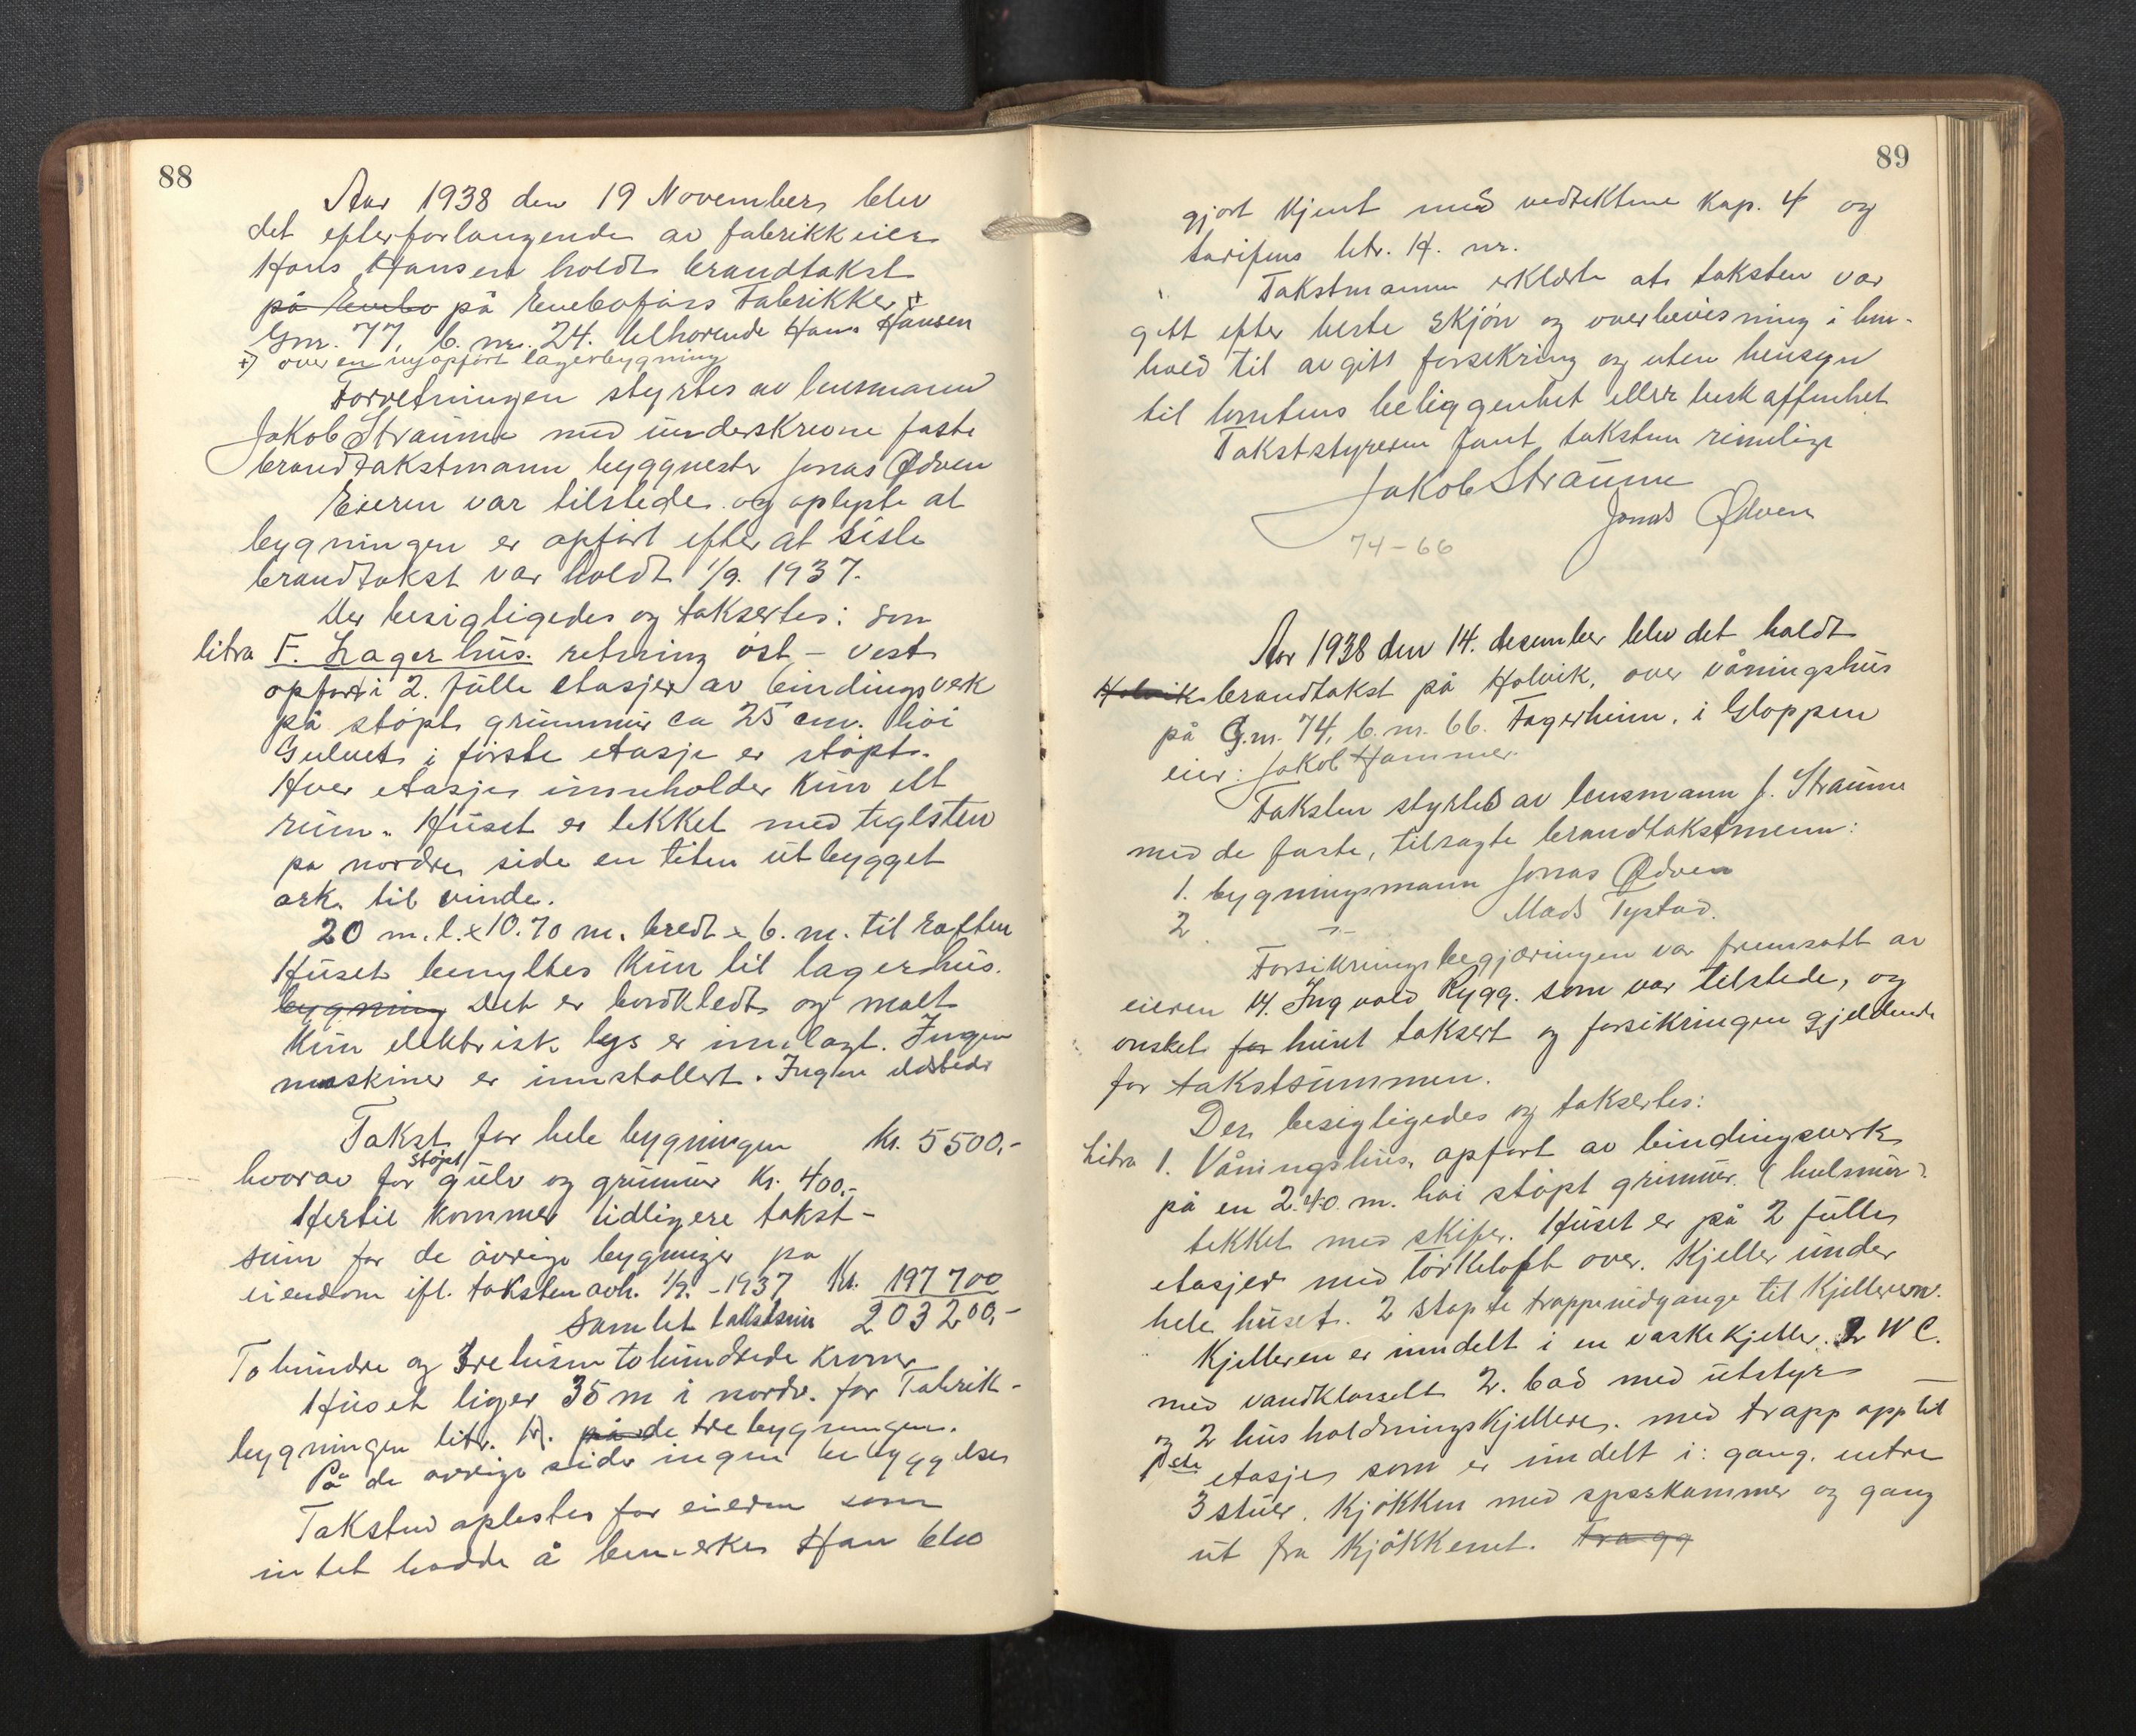 88
Aar 1938 den 19 November blev
det efter forlangende av fabrikkeier
Hans Hansen holdt brandtakst
på Enebo på Enebofoss Fabrikker +
Gnr. 77, b. nr. 24. tilhørende Hans Hansen
+) over en nyopført lagerbygning
Forretningen styrtes av lensmann
Jakob Straume med underskrevne faste
brandtakstmann byggmester Jonas Ødven
Eieren var tilstede og oplyste at
bygningen er opført efter at siste
brandtakst var holdt 1/9. 1937.
Der besigtigedes og taksertes: som
litra F. Lagerhus. retning øst - vest
opført i 2. fulle etasjer av bindingsverk
på støpt grunnmur ca 25 cm. høi
Gulvet i første etasje er støpt.
Hver etasje inneholder kun ett
rum. Huset er tekket med teglsten
på nordre side en liten utbygget
ark til vinde.
20 m. l. x 10.70 m. bredt x 6. m. til raften
Huset benyttes kun til lagerhus.
bygning Det er bordkledt og malt
Kun elektrisk lys er innlagt. Ingen
maskiner er innstallert. Ingen ildsteder
Takst for hele bygningen Kr. 5500,-
hvorav for støpt gulv og grunnmur Kr. 400,-
Hertil kommer tidligere takst-
sum for de øvrige bygninger på
eiendom ifl. taksten avh. 1/9. - 1937 Kr. 197 700
Samlet takstsum 203 200,-
To hundre og tretusen to hundrede kroner
Huset liger 35 m i nordv. for Fabrik-
bygningen litr. A. på de tre bygningen.
På de øvrige sider ingen bebyggelse
Taksten oplestes for eieren som
intet hadde å bemerke Han blev
89
gjort kjent med vedtektene kap. 4 og
tarifens litr. H. nr.
Takstmannen erklærte at taksten var
gitt efter beste skjøn og overbevisning i hen-
hold til avgitt forsikring og uten hensyn
til tomtens beliggenhet eller beskaffenhet
Takststyreren fant taksten rimelige
Jakob Straume
Jonas Ødven
74-66
Aar 1938 den 14. desember blev det holdt
Holvik brandtakst på Holvik, over våningshus
på G.nr. 74, b. nr. 66. Fagerheim, i Gloppen
eier: Jakob Hammer.
Taksten styrtes av lensmann J. Straume
med de faste, tilsagte brandtakstmenn:
1. bygningsmann Jonas Ødven
2. -"- Mads Tystad.
Forsikringsbegjæringen var fremsatt av
eieren H. Ingvald Rygg. som var tilstede, og
ønsket for huset taksert og forsikringen gjeldende
for takstsummen.
Der besigtigedes og taksertes:
Litra 1. Våningshus, opført av bindingsverk
på en 2.40. m. høi støpt grunnmur (hulmur)
tekket med skifer. Huset er på 2 fulle
etasjer med tørkeloft over. Kjeller under
hele huset. 2 støpte trappenedgange til kjelleren.
Kjelleren er inndelt i en vaskekjeller. 2 WC.
med vandklosett 2. bad med utstyr
og 2 husholdningskjellere. med trapp opp til
1ste etasje som er inndelt i: gang. entre
3 stuer. Kjøkken med spiskammer og gang
ut fra kjøkkenet. Tragg